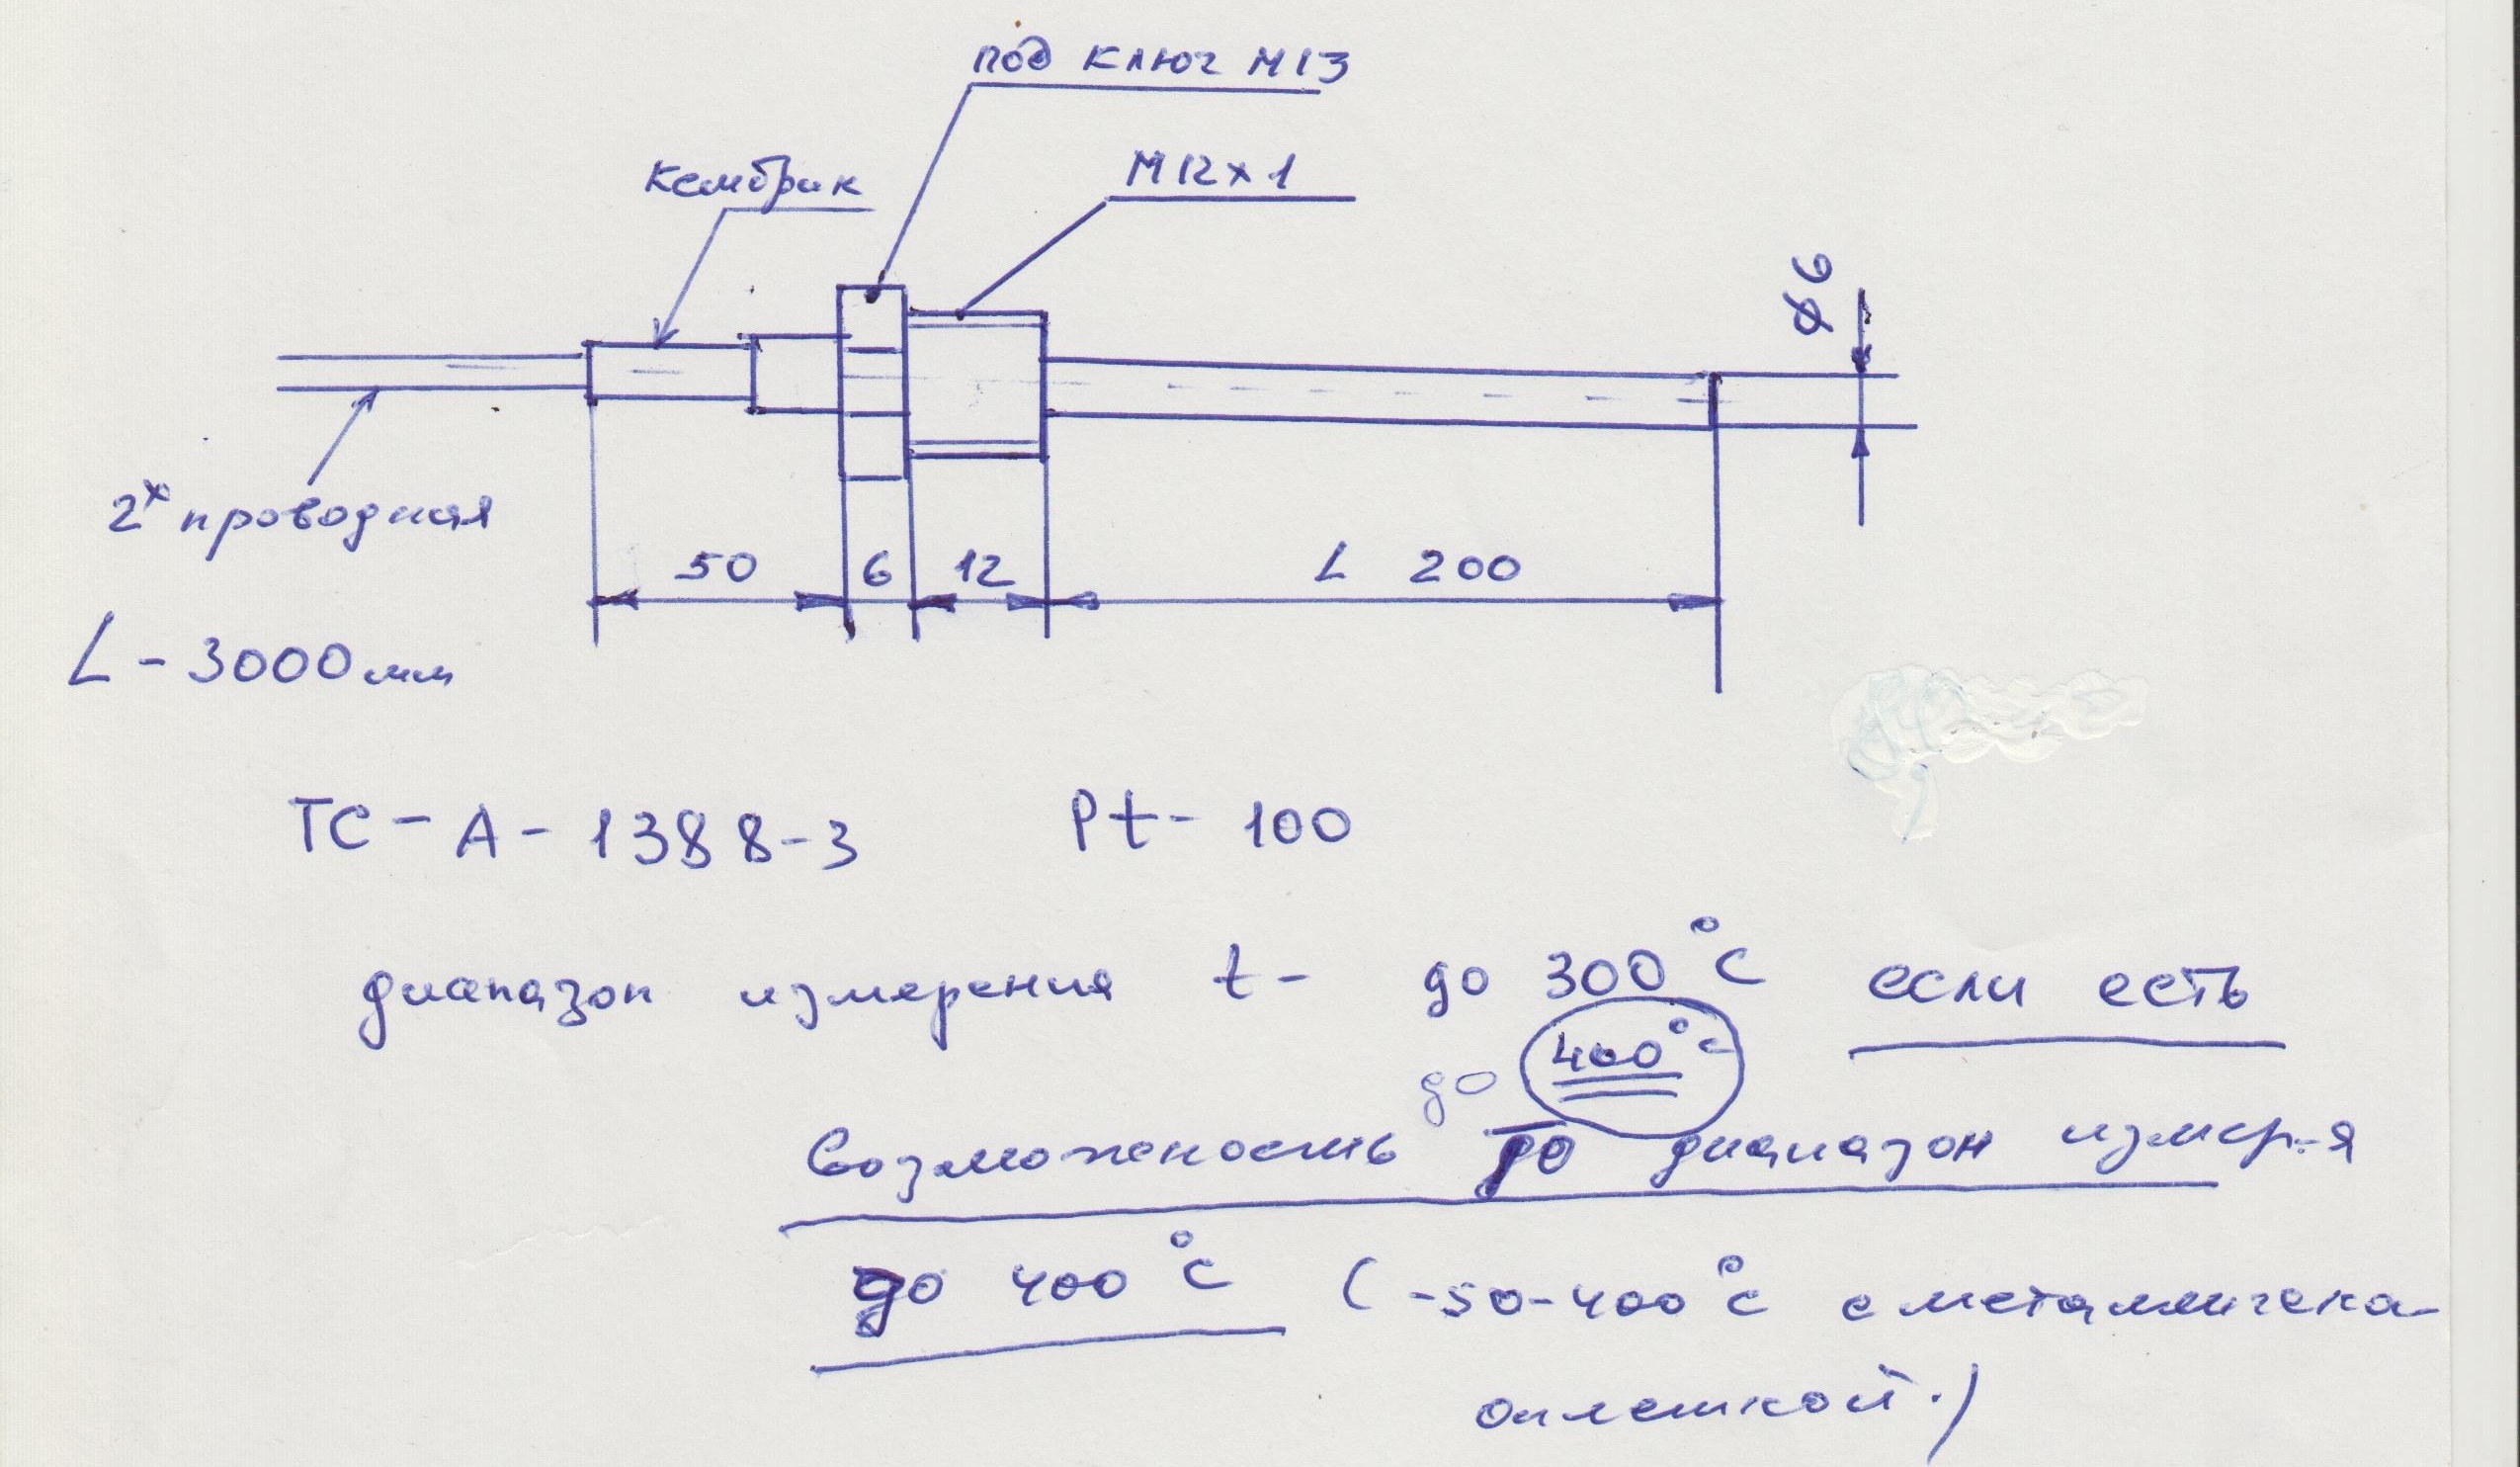 под ключ М13
М12х1
кембрик
⌀6
2х проводная
50 6 12 L 200
L - 3000мм
ТС - А - 1388-3 Pt - 100
диапазон измерения t - до 300°С если есть
до 400°С
возможность до диапазон измер-я
до 400°С (-50-400°С с металлическа-
оплеткой.)